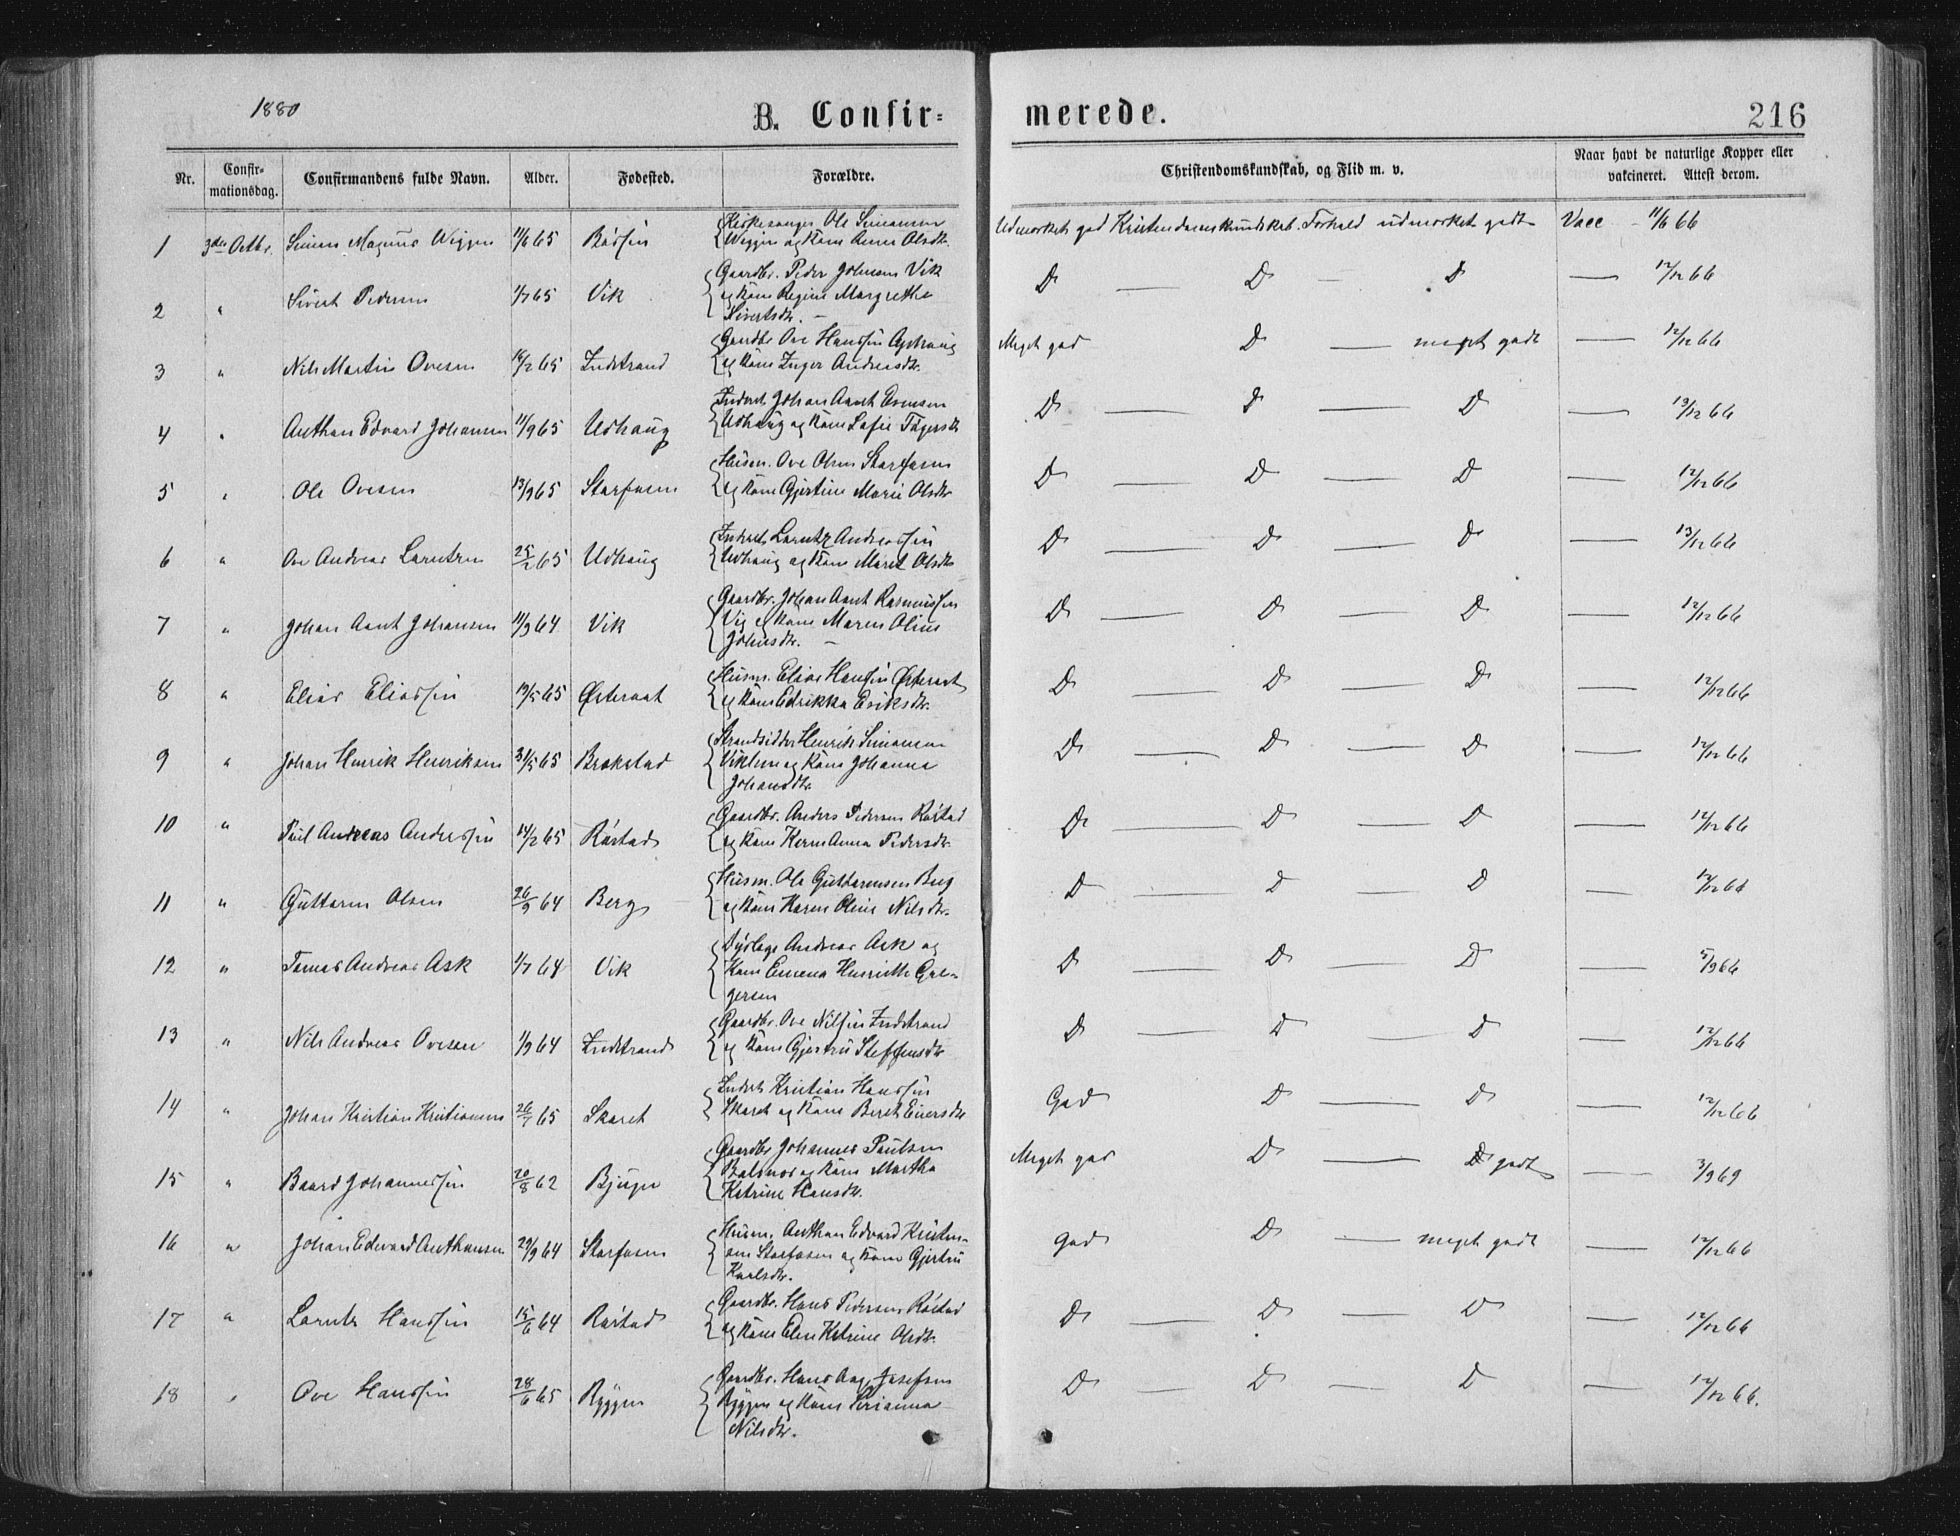 1880
B. Confir=
merede.
216
Nr.
Confir-
mationsdag.
Confirmandens fulde Navn.
Alder.
Fødested.
Forældre.
Christendomskundskab, og Flid m. v.
Naar havt de naturlige Kopper eller
vakcineret. Attest derom.
1 3die Octbr. Simon Magnus Wiggen 11/6 65
Kirkesanger Ole Simonsen
Wiggen og Kone Anne Olsdtr.
Udmærket god Kristendomskundskab. Forhold udmærket godt Vacc - 11/6 66
2 " Sivert Pedersen 1/7 65 Vik
Gaardbr. Peder Johnsen Vik
og Kone Regine Margrethe
Sivertsdtr. —
D — D — D — 12/12 66
3 " Nils Martin Ovesen 16/2 65 Indstrand
Gaardbr Ove Hanssen
og Kone Inger Andreasdtr.
Meget god D — meget godt — 12/12 66
4 " Anthon Edvard Johansen 11/9 65 Udhaug
Inderst Johan Arnt
Udhaug og Kone Sofie
D — D — D — 13/12 66
5 " Ole Ovesen 13/9 65 Storfosen
Husm. Ove Olsen Storfosen
og Kone Gjertine Marie Olsdtr
D — D — D — 12/12 66
6 " Ove Andreas Larntzen 25/2 65 Udhaug
Inderst Larntz Andreassen
Udhaug og Kone Marit Olsdtr
D — D — D — 13/12 66
7 " Johan Arnt Johansen 11/9 64 Vik
Gaardbr. Johan Arnt Rasmussen
Vig og Kone Maren Oline
Johnsdtr. —
D — D — D — 12/12 66
8 " Elias Eliassen 19/5 65 Østeraat
Husm. Elias Hansen Østeraat
og Kone Edrikka Eriksdtr.
D — D — D — 12/12 66
9 " Johan Henrik Henriksen 31/5 65 Brekstad
Strandsidder Henrik Simonsen
og Kone Johanna
Johansdtr.
D — D — D — 12/12 66
10 " Paul Andreas Anderssen 14/2 65 Røstad
Gaardbr. Anders Pedersen Røstad
og Kone Keren Anna Pedersdtr.
D — D — D — 12/12 66
11 " Guttorm Olsen 26/9 64 Berg
Husm. Ole Guttormsen Berg
og Kone Karen Oline Nilsdtr.
D — D — D — 12/12 66
12 " Tomas Andreas Ask 1/7 64 Vik
Dyrlæge Andreas Ask og
Kone Emma Henriette Gre-
gersen
D — D — D — 5/9 66
13 " Nils Andreas Ovesen 1/9 64 Indstrand
Gaardbr. Ove Nilssen Indstrand
og Kone Gjertru Steffensdtr
D — D — D — 12/12 66
14 " Johan Kristian Kristiansen 26/7 65 Skaret
Inderst Kristian Hanssen
Skaret og Kone Beret Eliersdtr
God D — D — 12/12 66
15 " Baard Johannessen 20/8 62 Bjugn
Gaardbr Johannes Paulsen
Balsnes og Kone Martha
Katrine Hansdtr.
Meget god D — godt — 3/9 69
16 " Johan Edvard Anthonsen 29/9 64 Storfosen
Husm. Anthon Edvard Kristen-
sen Storfosen og Kone Gjertru
Karlsdtr.
God D — meget godt — 12/12 66
17 " Larntz Hanssen 15/6 64 Røstad
Gaardbr. Hans Pedersen Røstad
og Kone Elen Katrine Olsdtr.
D — D — D — 12/12 66
18 " Ove Hanssen 28/6 65 Ryggen
Gaardbr. Hans Aage Josefsen
Ryggen og Kone Perianna
Nilsdtr.
D — D — D — 12/12 66.